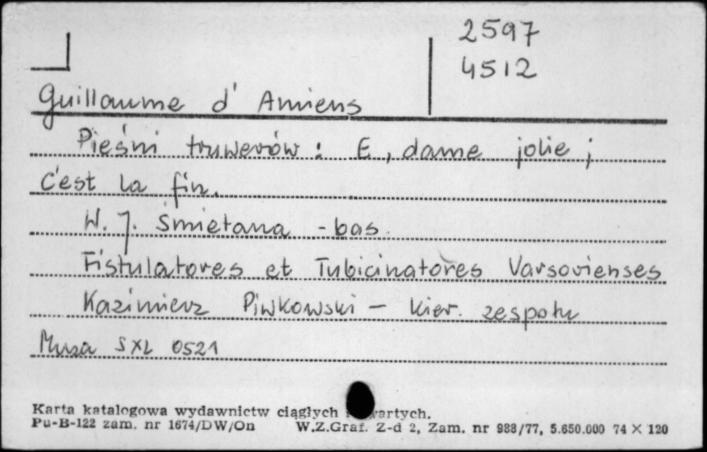 2597
4512
Guillaume d' Amiens
Pieśni truwerów : E, dame jolie ;
C'est la fin.
W. J. Śmietana - bas.
Fistulatores et Tubicinatores Varsovienses
Kazimierz Piwkowski - kier. zespołu
Muza SXL 0521
Karta katalogowa wydawnictw ciągłych wartych.
Pu-B-122 zam. nr 1674/DW/On W.Z.Graf. Z-d 2, Zam. nr 988/77, 5.650.000 74 X 120